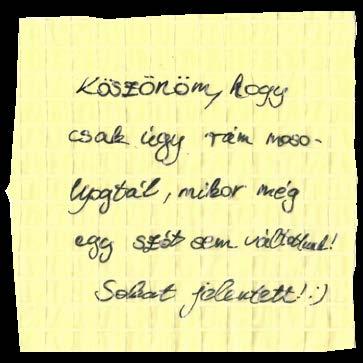 Köszönöm, hogy
csak úgy rám moso-
lyogtál, mikor még
egy szót sem váltottunk!
Sokat jelentett! :)